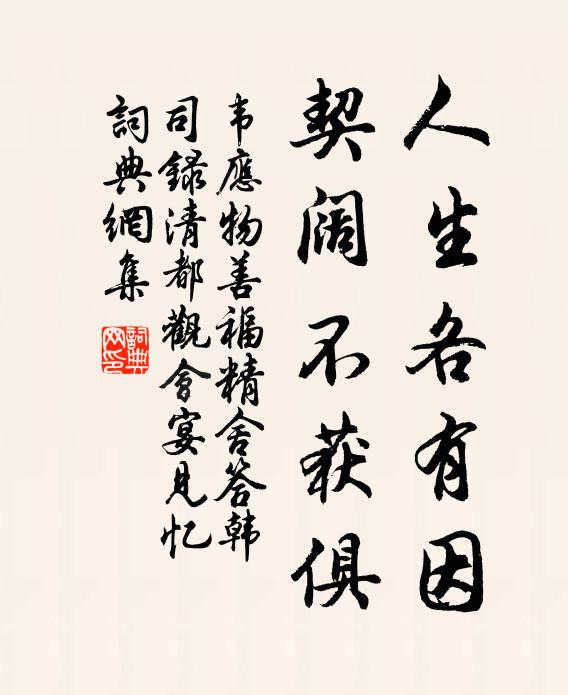 人生各有因
契阔不获俱
韦應物善福精舍答韩
司録清都觀會宴见忆
詞典網集
詞典網印